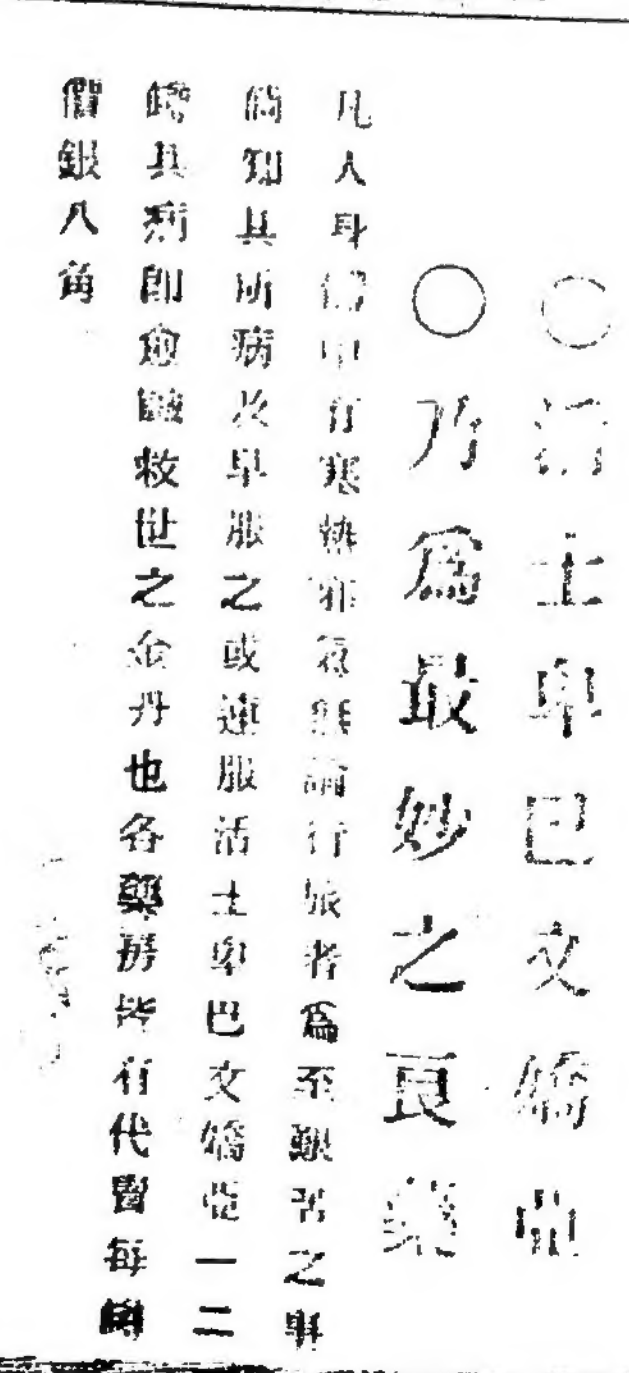 ○活士卑巴文嬌啞
○乃爲最妙之良藥
凡人身體中有寒熱邪氣無論行旅者爲至艱苦之事
倘知其所病及早服之或連服活士卑巴文嬌啞一二
罇其病卽愈誠救世之金丹也各藥房皆有代賣每罇
價銀八角